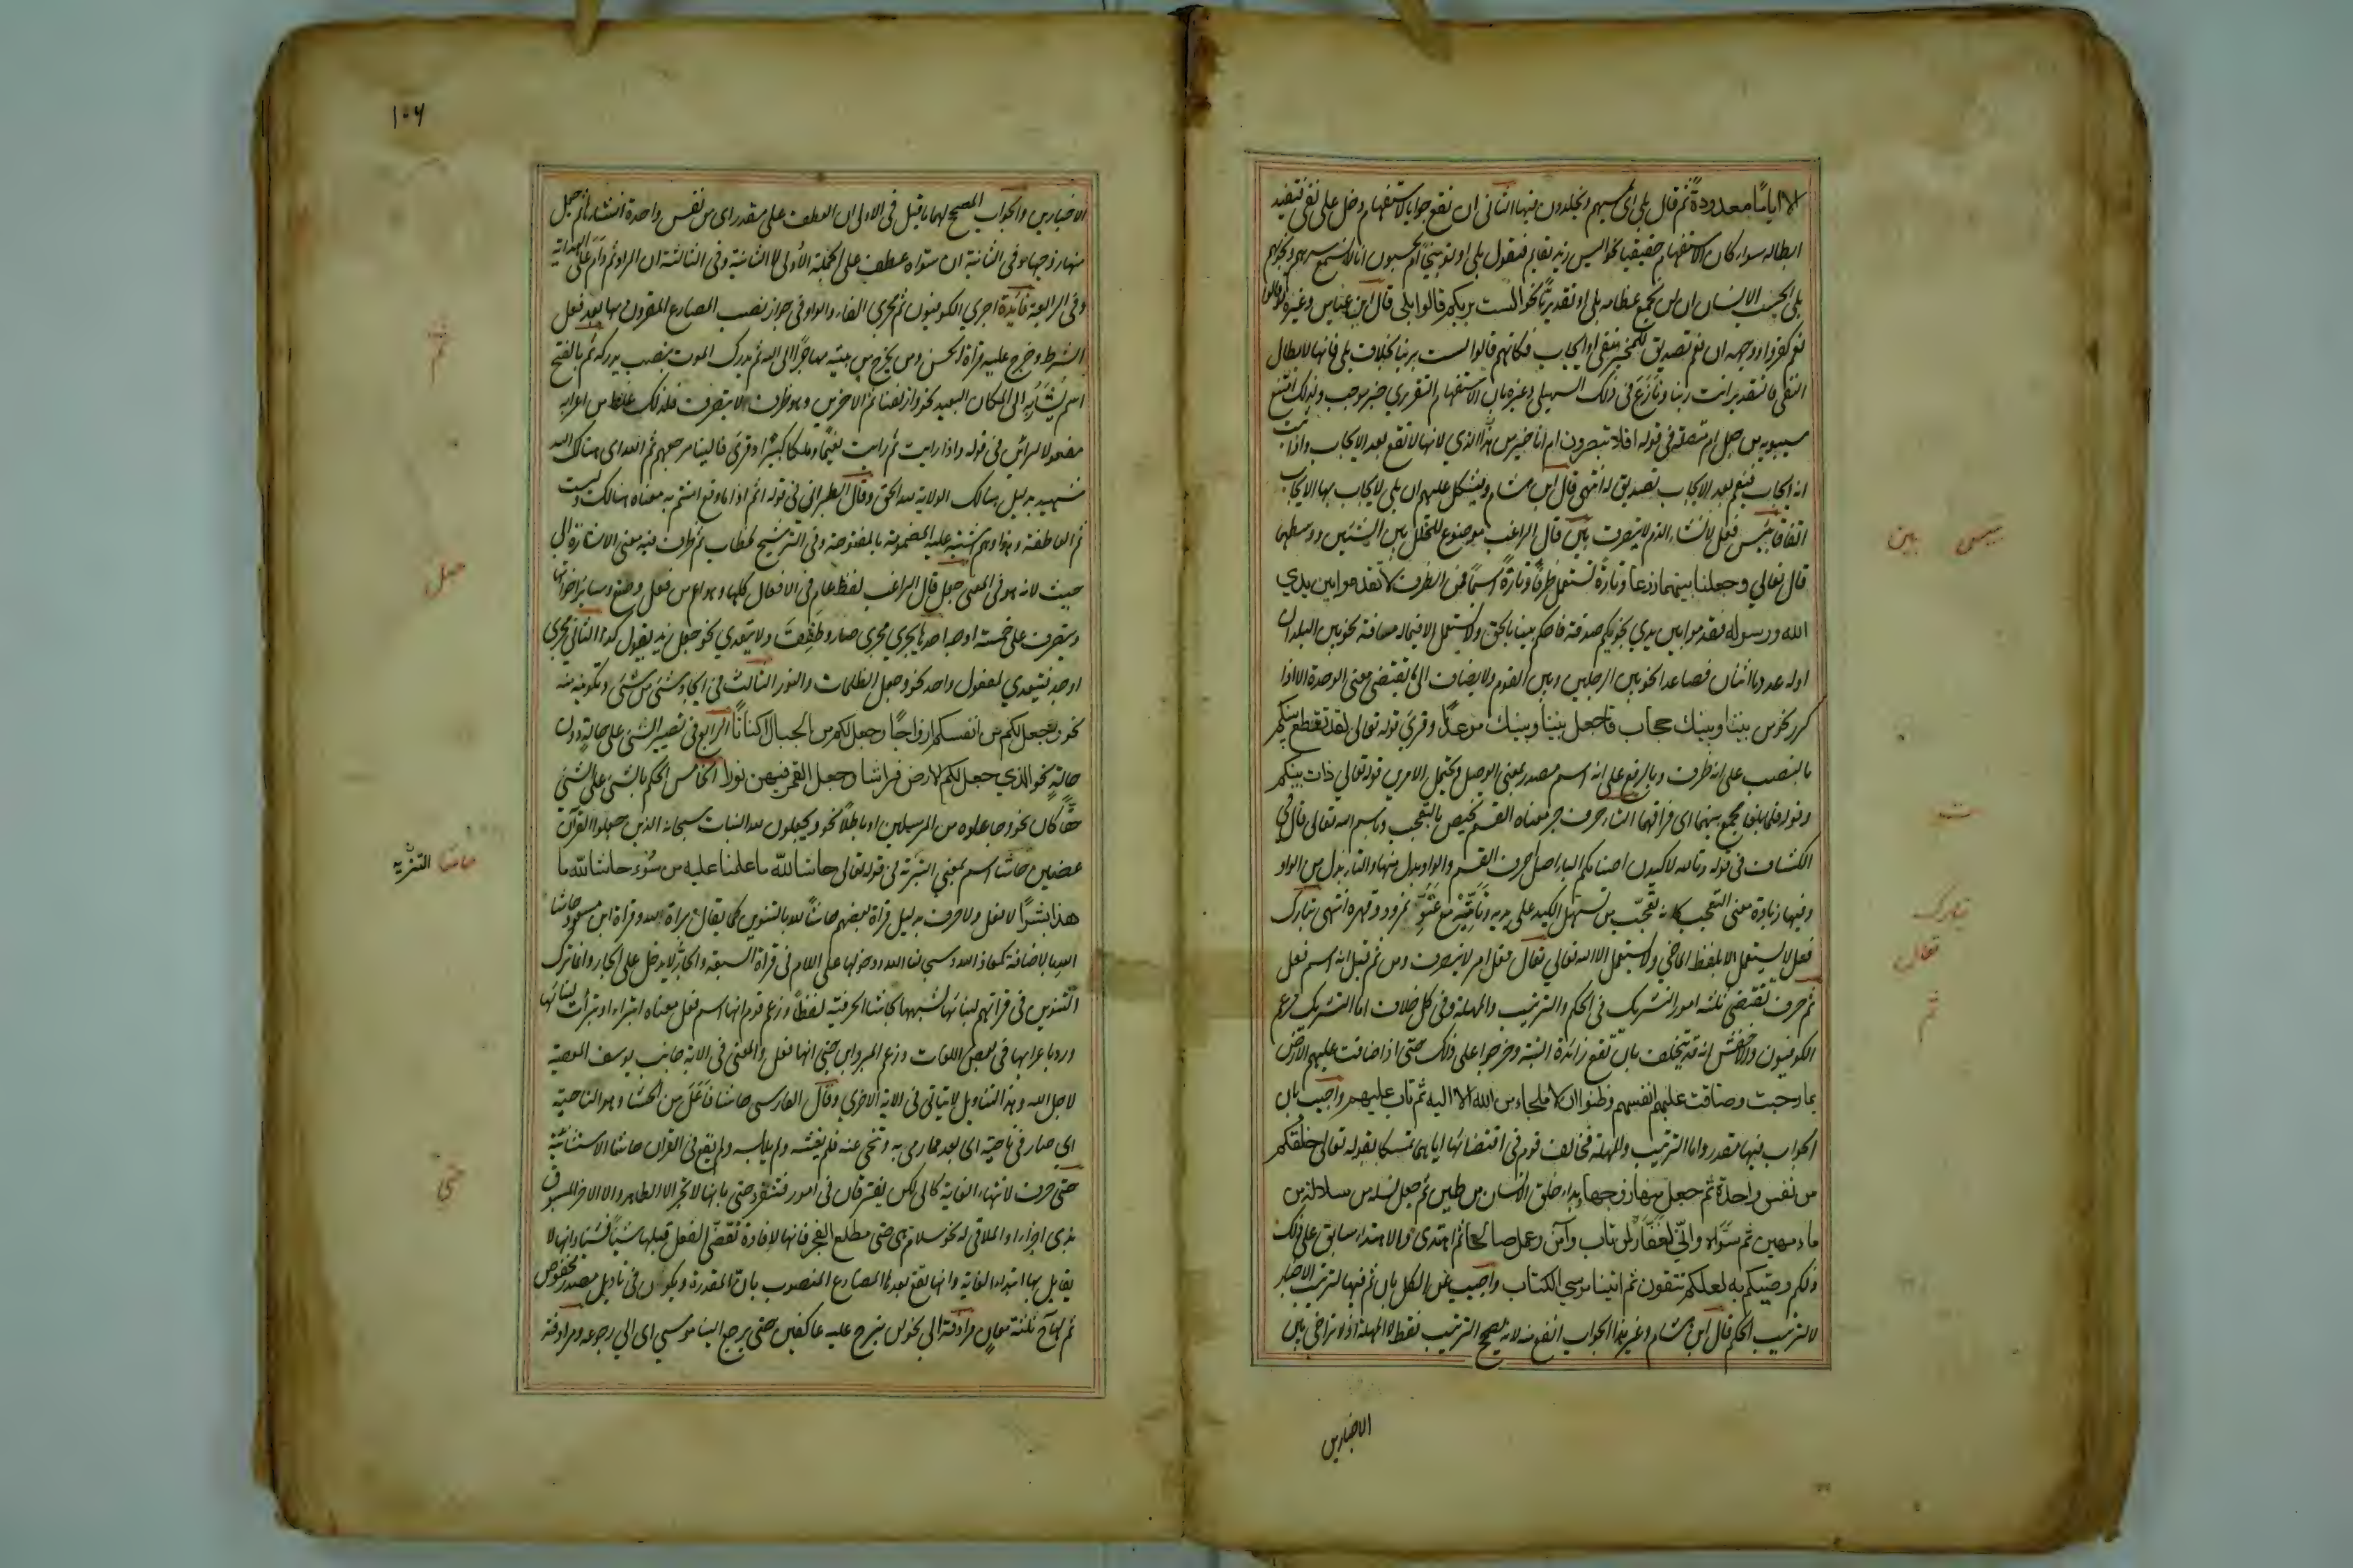 الا اياما معدودة ثم قال بلى اى تمسهم ويخلدون فيها الثانى ان تقع جوابا لاستفهام دخل على نفى فتفيد
ابطاله سواء كان الاستفهام حقيقيا نحو اليس زيد بقايم فيقول بلى او توبيخيا ام يحسبون انا لا نسمع سرهم ونجويهم
بلى ايحسب الانسان ان لن نجمع عظامه بلى او تقديريا نحو الست بربكم قالوا بلى قال ابن عباس وغيره لو قالوا
نعم كفروا ووجهه ان نعم تصديق للمخبر بنفى او ايجاب فكانهم قالوا لست بربنا بخلاف بلى فانها لابطال
النفى فالتقدير انت ربنا ونازع فى ذلك السهيلى وغيره بان الاستفهام التقريرى خبر موجب ولذلك امتنع
سيبويه من جعل ام متصلة فى قوله افلا تبصرون ام انا خير من هذا الذي لانها لا تقع بعد الايجاب واذا ثبت
انه ايجاب فنعم بعد الايجاب تصديق له انتهى قال ابن هشام ويشكل عليهم ان بلى لا يجاب بها الايجاب
اتفاقا بئس فعل لانشاء الذم لا يتصرف بين قال الراغب موضوع للتخلل بين الشيئين ووسطهما
قال تعالي وجعلنا بينهما زرعا وتارة تستعمل ظرفا وتارة اسما فمن الظرف لا تقدموا بين يدي
الله ورسوله فقدموا بين يدي نجويكم صدقة فاحكم بيننا بالحق ولا يستعمل الا فيما له مسافة نحو بين البلدان
او له عدد ما اثنان فصاعدا نحو بين الرجلين وبين القوم ولا يضاف الى ما يقتضى معنى الوحدة الا اذا
كرر نحو من بيننا وبينك حجاب فاجعل بيننا وبينك موعدا وقرئ قوله تعالى لقد تقطع بينكم
بالنصب على انه ظرف وبالرفع على انه اسم مصدر بمعنى الوصل ويحتمل الامرين قوله تعالي ذات بينكم
وقوله فلما بلغا مجمع بينهما اى فراقهما التاء حرف جر معناه القسم يختص بالتعجب وباسم الله تعالى قال فى
الكشاف فى قوله وتالله لاكيدن اصنامكم الباء اصل حرف القسم والواو بدل منها والتاء بدل من الواو
وفيها زيادة معنى التعجب كانه تعجب من تسهل الكيد على يديه وتاتيه مع عتو نمرود وقهره انتهى تبارك
فعل لا يستعمل الا بلفظ الماضي ولا يستعمل الا لله تعالي تعال فعل امر لا يتصرف ومن ثم قيل انه اسم فعل
ثم حرف يقتضى ثلثة امور التشريك فى الحكم والترتيب والمهلة وفى كل خلاف اما التشريك فزعم
الكوفيون والاخفش انه قد يتخلف بان تقع زائدة البتة وخرجوا على ذلك حتى اذا ضاقت عليهم الارض
بما رحبت وضاقت عليهم انفسهم وظنوا ان لا ملجاء من الله الا اليه ثم تاب عليهم واجيب بان
الجواب فيها مقدر واما الترتيب والمهلة فخالف قوم فى اقتضائها اياهما تمسكا بقوله تعالى خلقكم
من نفس واحدة ثم جعل منها زوجها بداء خلق الانسان من طين ثم جعل نسله من سلالة من
ماء مهين ثم سواه وانى لغفار لمن تاب وآمن وعمل صالحا ثم اهتدى والاهتداء سابق على ذلك
ذلكم وصيكم به لعلكم تتقون ثم اتينا موسي الكتاب واجيب عن الكل بان ثم فيها لترتيب الاخبار
لا لترتيب الحكم قال ابن هشام وغير هذا الجواب انفع منه لانه يصحح الترتيب فقط لا المهلة اذ لا تراخى بين
الاخبارين
بئس بين
ت
تبارك
تعال
ثم
١٠٦
الاخبارين والجواب المصحح لهما ما قيل فى الاولى ان العطف على مقدر اى من نفس واحدة انشاها ثم جعل
منها زوجها وفى الثانية ان سواه عطف على الجملة الاولى لا الثانية وفى الثالثة ان المراد ثم دام على الهداية
وفى الرابعة فائدة اجري الكوفيون ثم مجرى الفاء والواو فى جواز نصب المضارع المقرون بها بعد فعل
الشرط وخرج عليه قراة الحسن ومن يخرج من بيته مهاجرا الى الله ثم يدركه الموت بنصب يدركه ثم بالفتح
اسم يشار به الى المكان البعيد نحو وازلفنا ثم الاخرين وهو ظرف لا يتصرف فلذلك غلط من اعربه
مفعولا لرايت فى قوله واذا رايت ثم رايت نعيما وملكا كبيرا وقرئ فالينا مرجعهم ثم الله اى هنالك الله
شهيد بدليل هنالك الولاية لله الحق وقال الطبرانى فى قوله اثم اذا ما وقع امنتم به معناه هنالك وليست
ثم العاطفة وهذا وهم اشتبه عليه المضمومة بالمفتوحة وفى الترشيح لخطاب ثم ظرف فيه معنى الاشارة الى
حيث لانه هو فى المعنى جعل قال الراغب لفظ عام فى الافعال كلها وهو اعم من فعل وصنع وساير اخواتها
ويتصرف على خمسة اوجه احدها يجري مجرى صار وطفقت ولا يتعدي نحو جعل زيد يقول كذا الثانى مجري
اوجد فيتعدي لمفعول واحد نحو وجعل الظلمات والنور الثالث فى ايجاد شئ من شئ وتكوينه منه
نحو وجعل لكم من انفسكم ازواجا وجعل لكم من الجبال اكنانا الرابع فى تصيير الشئ على حالة دون
حالة نحو الذي جعل لكم الارض فراشا وجعل القمر فيهن نورا الخامس الحكم بالشئ على الشئ
حقا كان نحو وجاعلوه من المرسلين او باطلا نحو ويجعلون لله البنات سبحانه الذين جعلوا القرآن
عضين حاشا اسم بمعني التنزيه فى قوله تعالى حاشا لله ما علمنا عليه من سوء حاشا لله ما
هذا بشرا لا فعل ولا حرف بدليل قراة بعضهم حاشا لله بالتنوين كما يقال براة لله وقراة ابن مسعود حاشا
الله بالاضافة كمعاذ الله وسبحان الله ودخولها على اللام فى قراة السبعة والجار لا يدخل على الجار وانما ترك
التنوين فى قراتهم لبنائها لشبهها بحاشا الحرفية لفظا وزعم قوم انها اسم فعل معناه اتبراء او تبرات لبنائها
ورد باعرابها فى بعض اللغات وزعم المبرد وابن جنى انها فعل والمعنى فى الاية جانب يوسف المعصية
لاجل الله وهذا التاويل لا يتاتى فى الاية الاخري وقال الفارسى حاشا فاعل من الحشا وهو الناحية
اى صار فى ناحية اى بعد مما رمى به وتنحى عنه فلم يغشه ولم يلابسه ولم يقع فى القران حاشا الا استثنائية
حتى حرف لانتهاء الغاية كالى لكن يفترقان فى امور فتنفرد حتى بانها لا تجر الا الظاهر والا الاخر المسبوق
بذى اجزاء او الملاقى له نحو سلام هى حتى مطلع الفجر فانها لافادة تقضى الفعل قبلها شيئا فشيئا وانها لا
يقابل بها ابتداء الغاية وانها تقع بعدها المضارع المنصوب بان المقدرة ويكونان فى تاويل مصدر مخفوض
ثم لها ح ثلثة معان مرادفة الى نحو لن نبرح عليه عاكفين حتى يرجع الينا موسى اى الى رجوعه ومرادفة
ثم
جعل
حاشا التنزيه
حتى